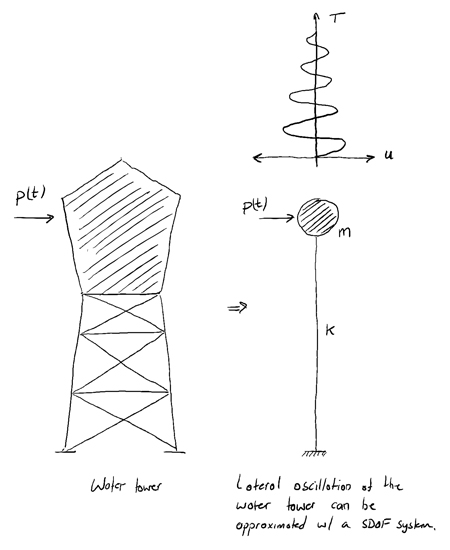 T
u
p(t)
p(t)
m
⇒
K
Water tower
Lateral oscillation of the
water tower can be
approximated w/ a SDOF system.